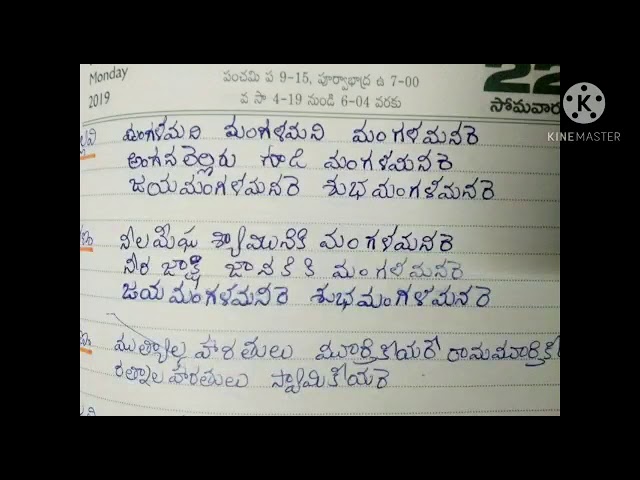 Monday
2019
పంచమి ప 9-15, పూర్వాభాద్ర ఉ 7-00
వ సా 4-19 నుండి 6-04 వరకు
22
సోమవార
KINEMASTER
ల్లవి మంగళమని మంగళమని మంగళమనరె
అంగన లెల్లరు గూడి మంగళమనరె
జయమంగళమనరె శుభమంగళమనరె
ణం నీలమేఘ శ్యామునికి మంగళమనరె
నీరజాక్షి జానకికి మంగళమనరె
జయమంగళమనరె శుభమంగళమనరె
ణం ముత్యాల హారతులు మూర్తికీయరే రామమూర్తికీ
రత్నాల హారతులు స్వామికీయరె